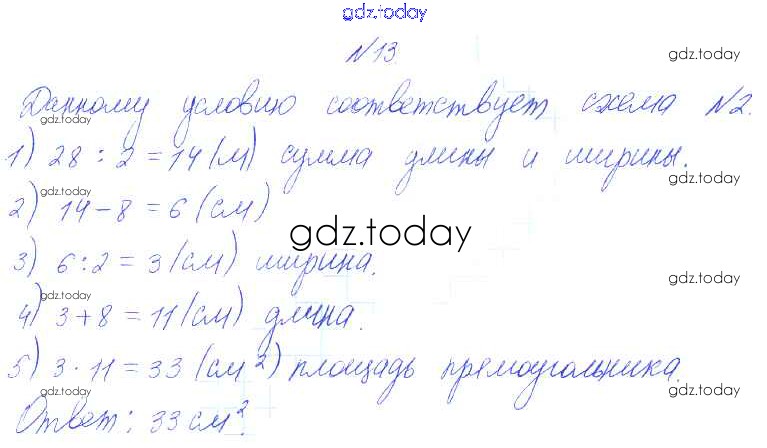 gdz.today
№13.
gdz.today
Данному условию соответствует схема №2.
gdz.today
1) 28 : 2 = 14 (м) сумма длины и ширины.
gdz.today
gdz.today
2) 14 - 8 = 6 (см)
gdz.today
3) 6 : 2 = 3 (см) ширина.
gdz.today
gdz.today
4) 3 + 8 = 11 (см) длина.
gdz.today
5) 3 · 11 = 33 (см²) площадь прямоугольника.
gdz.today
Ответ: 33 см².